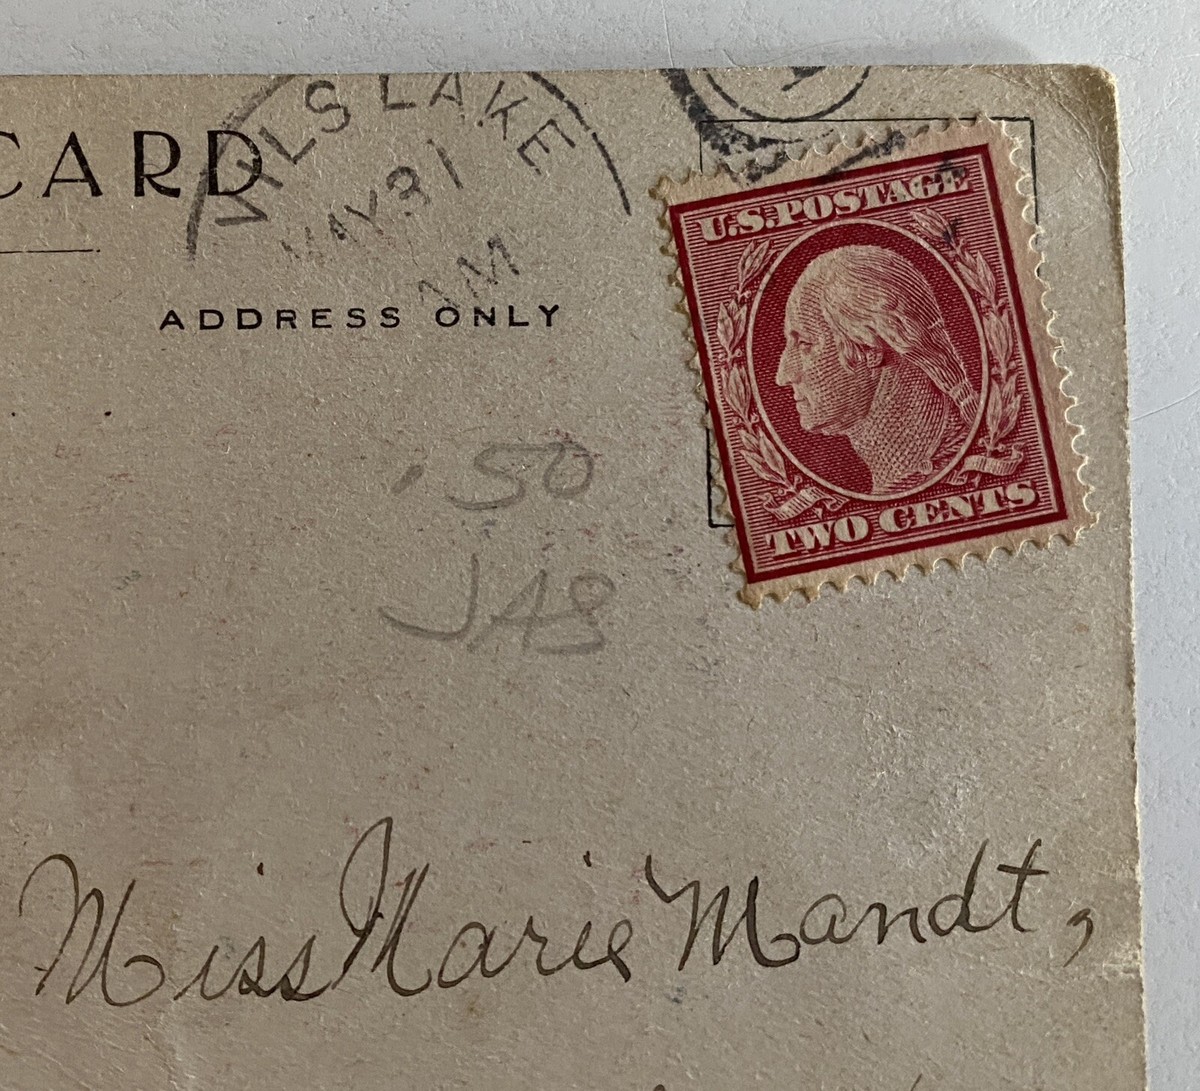 CARD
VILS LAKE
MAY 31
AM
ADDRESS ONLY
U.S. POSTAGE
TWO CENTS
.50
JAS
Miss Marie Mandt,